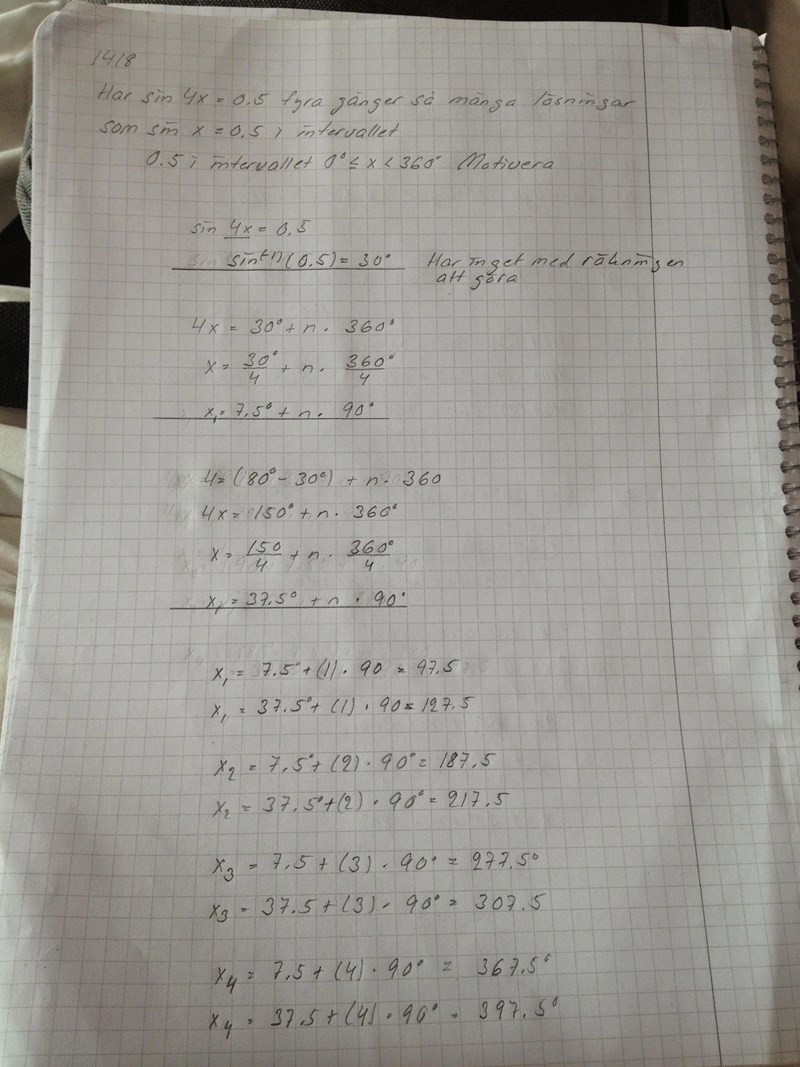 1418
Har sin 4x = 0,5 fyra gånger så många lösningar
som sin x = 0,5 i intervallet
0.5 i intervallet 0° ≤ x < 360° Motivera
sin 4x = 0,5
sin(-1) (0.5) = 30° Har inget med räkningen
att göra
4x = 30° + n · 360°
x = 30°/4 + n · 360°/4
x₁ = 7.5° + n · 90°
4 = (180° - 30°) + n · 360
4x = 150° + n · 360°
x = 150/4 + n · 360°/4
x₁ = 37.5° + n · 90°
x₁ = 7.5° + (1) · 90 = 97.5
x₁ = 37.5° + (1) · 90 = 127.5
x₂ = 7.5° + (2) · 90° = 187.5
x₂ = 37.5° + (2) · 90° = 217.5
x₃ = 7.5 + (3) · 90° = 277.5°
x₃ = 37.5 + (3) · 90° = 307.5
x₄ = 7.5 + (4) · 90° = 367.5°
x₄ = 37.5 + (4) · 90° = 397.5°